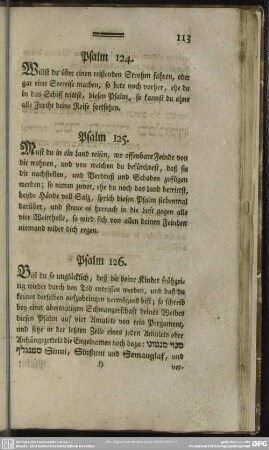 113
Psalm 124.
Willst du über einen reissenden Strohm fahren, oder
gar eine Seereise machen, so bete noch vorher, ehe du
in das Schiff trittst, diesen Psalm, so kannst du ohne
alle Furcht deine Reise fortsetzen.
Psalm 125.
Must du in ein Land reisen, wo offenbare Feinde von
dir wohnen, und von welchen du befürchtest, daß sie
dir nachstellen, und Verdruß und Schaden zufügen
werden; so nimm zuvor, ehe du noch das Land betrittst,
beyde Hände voll Salz, sprich diesen Psalm siebenmal
darüber, und streue es hernach in die Luft gegen alle
vier Welttheile, so wird sich von allen deinen Feinden
niemand wider dich regen.
Psalm 126.
Bist du so unglücklich, daß dir deine Kinder frühzei-
tig wieder durch den Tod entrissen werden, und daß du
keines derselben aufzubringen vermögend bist; so schreib
bey einer abermaligen Schwangerschaft deines Weibes
diesen Psalm auf vier Amulete von rein Pergament,
und setze in der letzten Zeile eines jeden Amulets oder
Anhängezettels die Engelnamen noch dazu: סנוי סנסנוי
סמנגלף Sinui, Sinsuni und Semanglaf, und
H
ver-